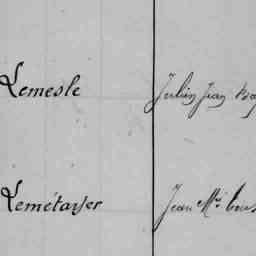 Lemesle Julien Jean
Lemétayer Jean Mie